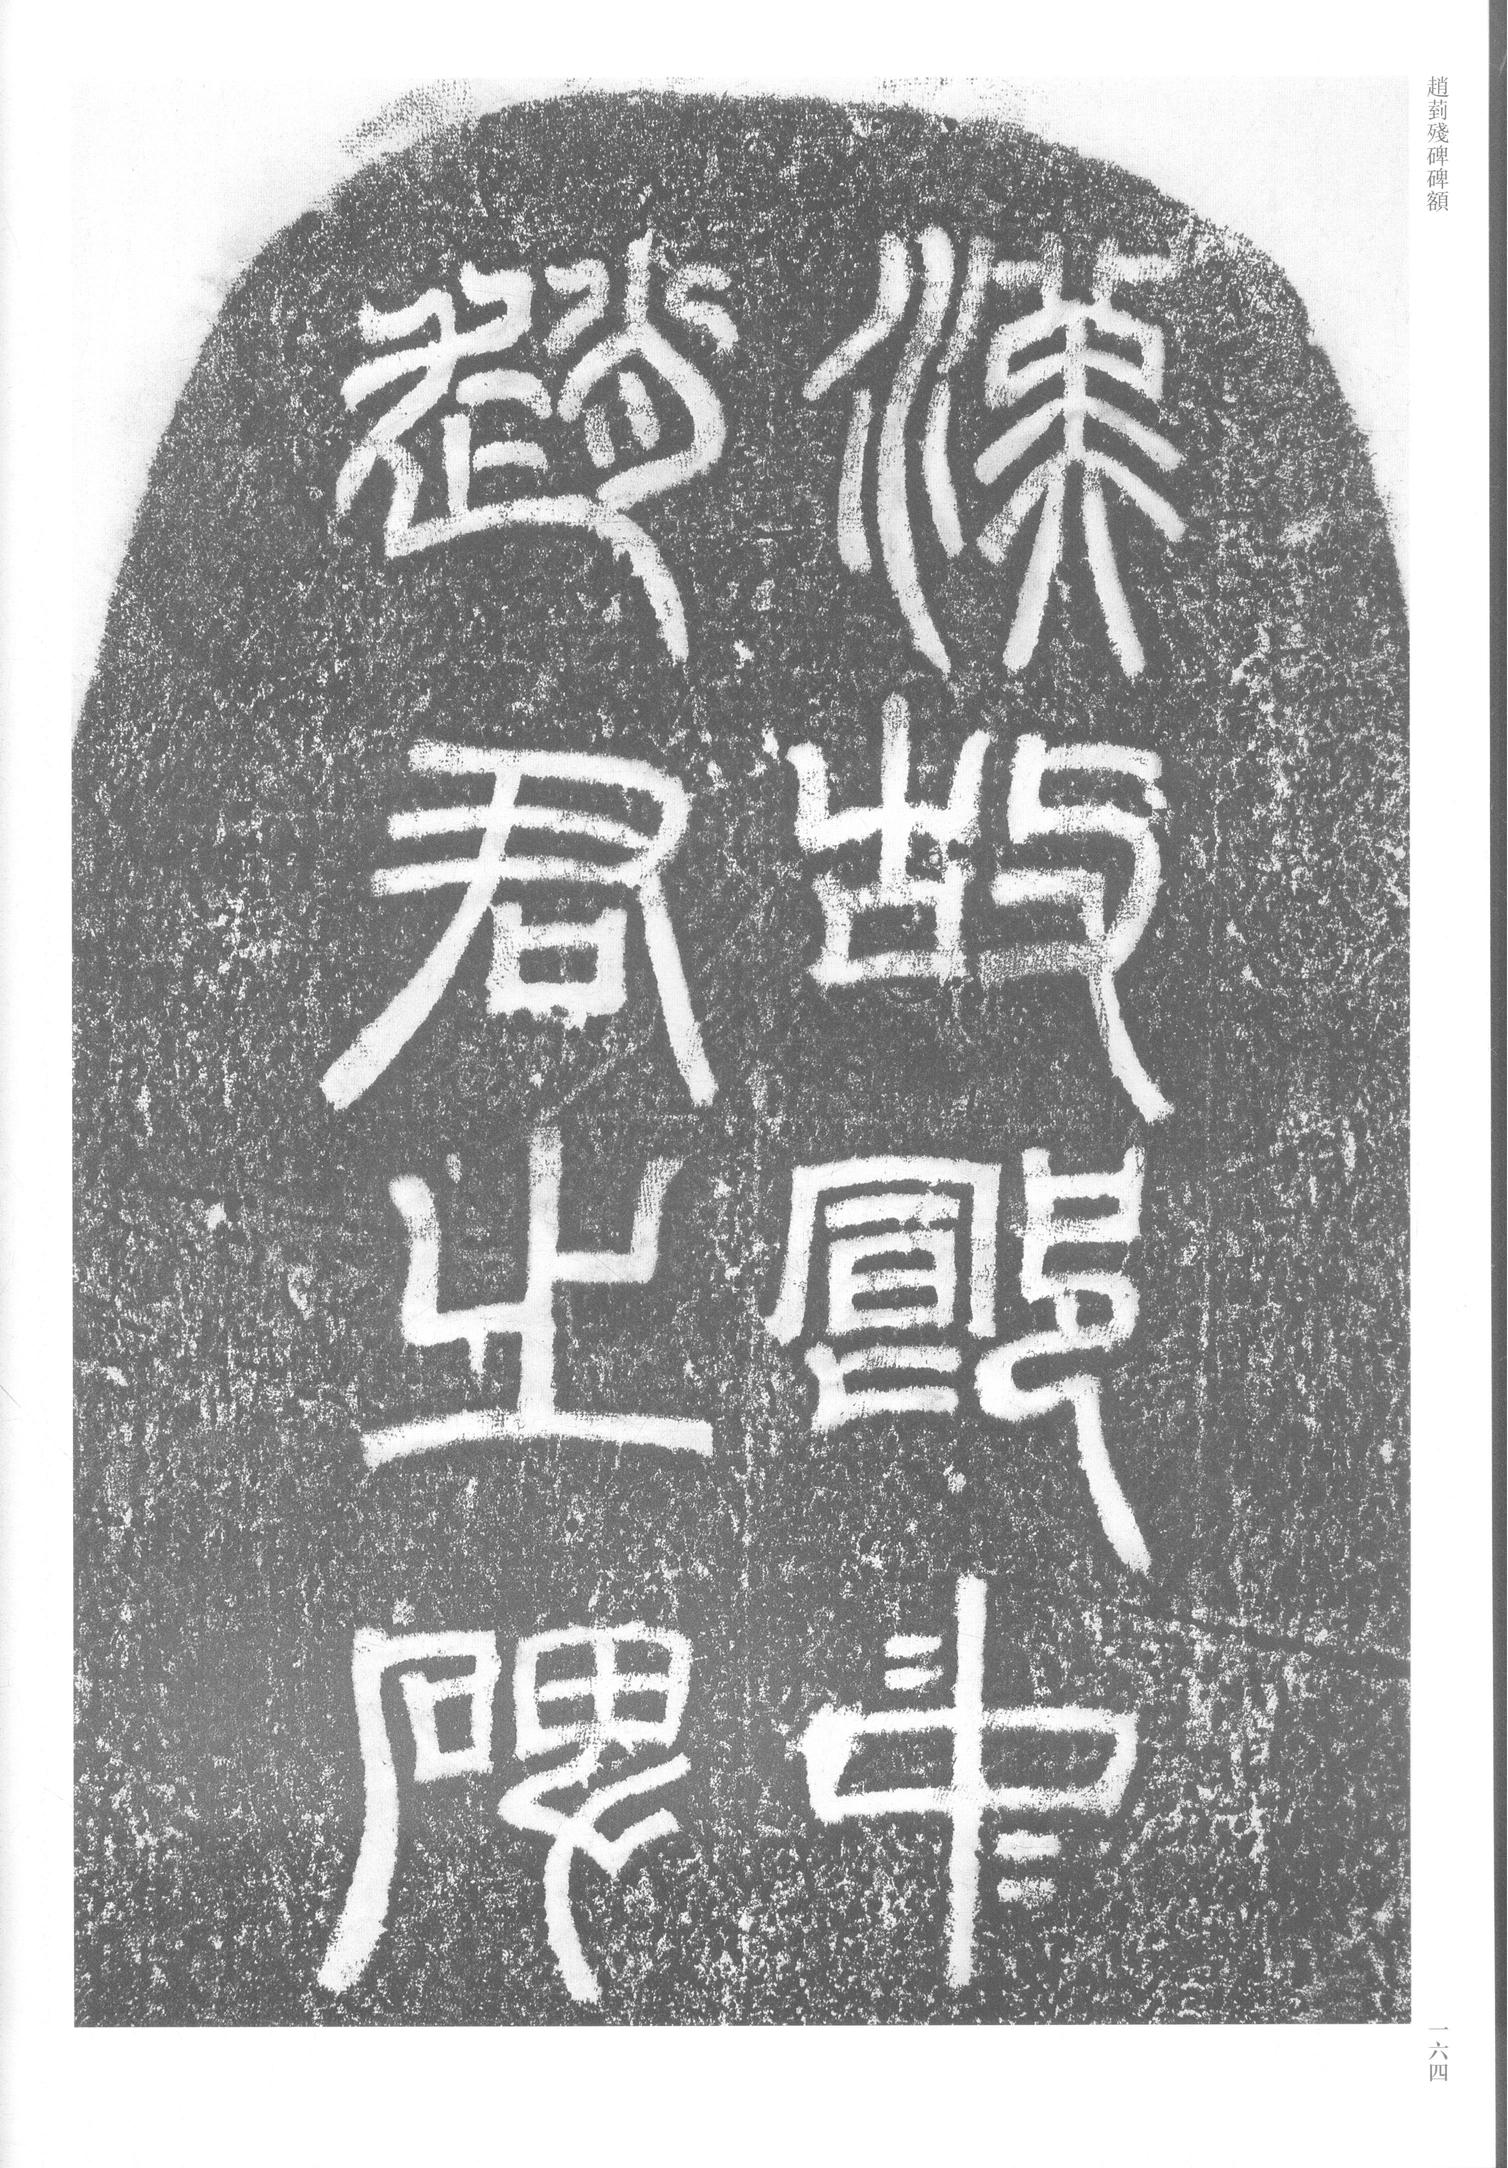 趙菿殘碑碑額
漢故郎中
趙君之碑
一六四